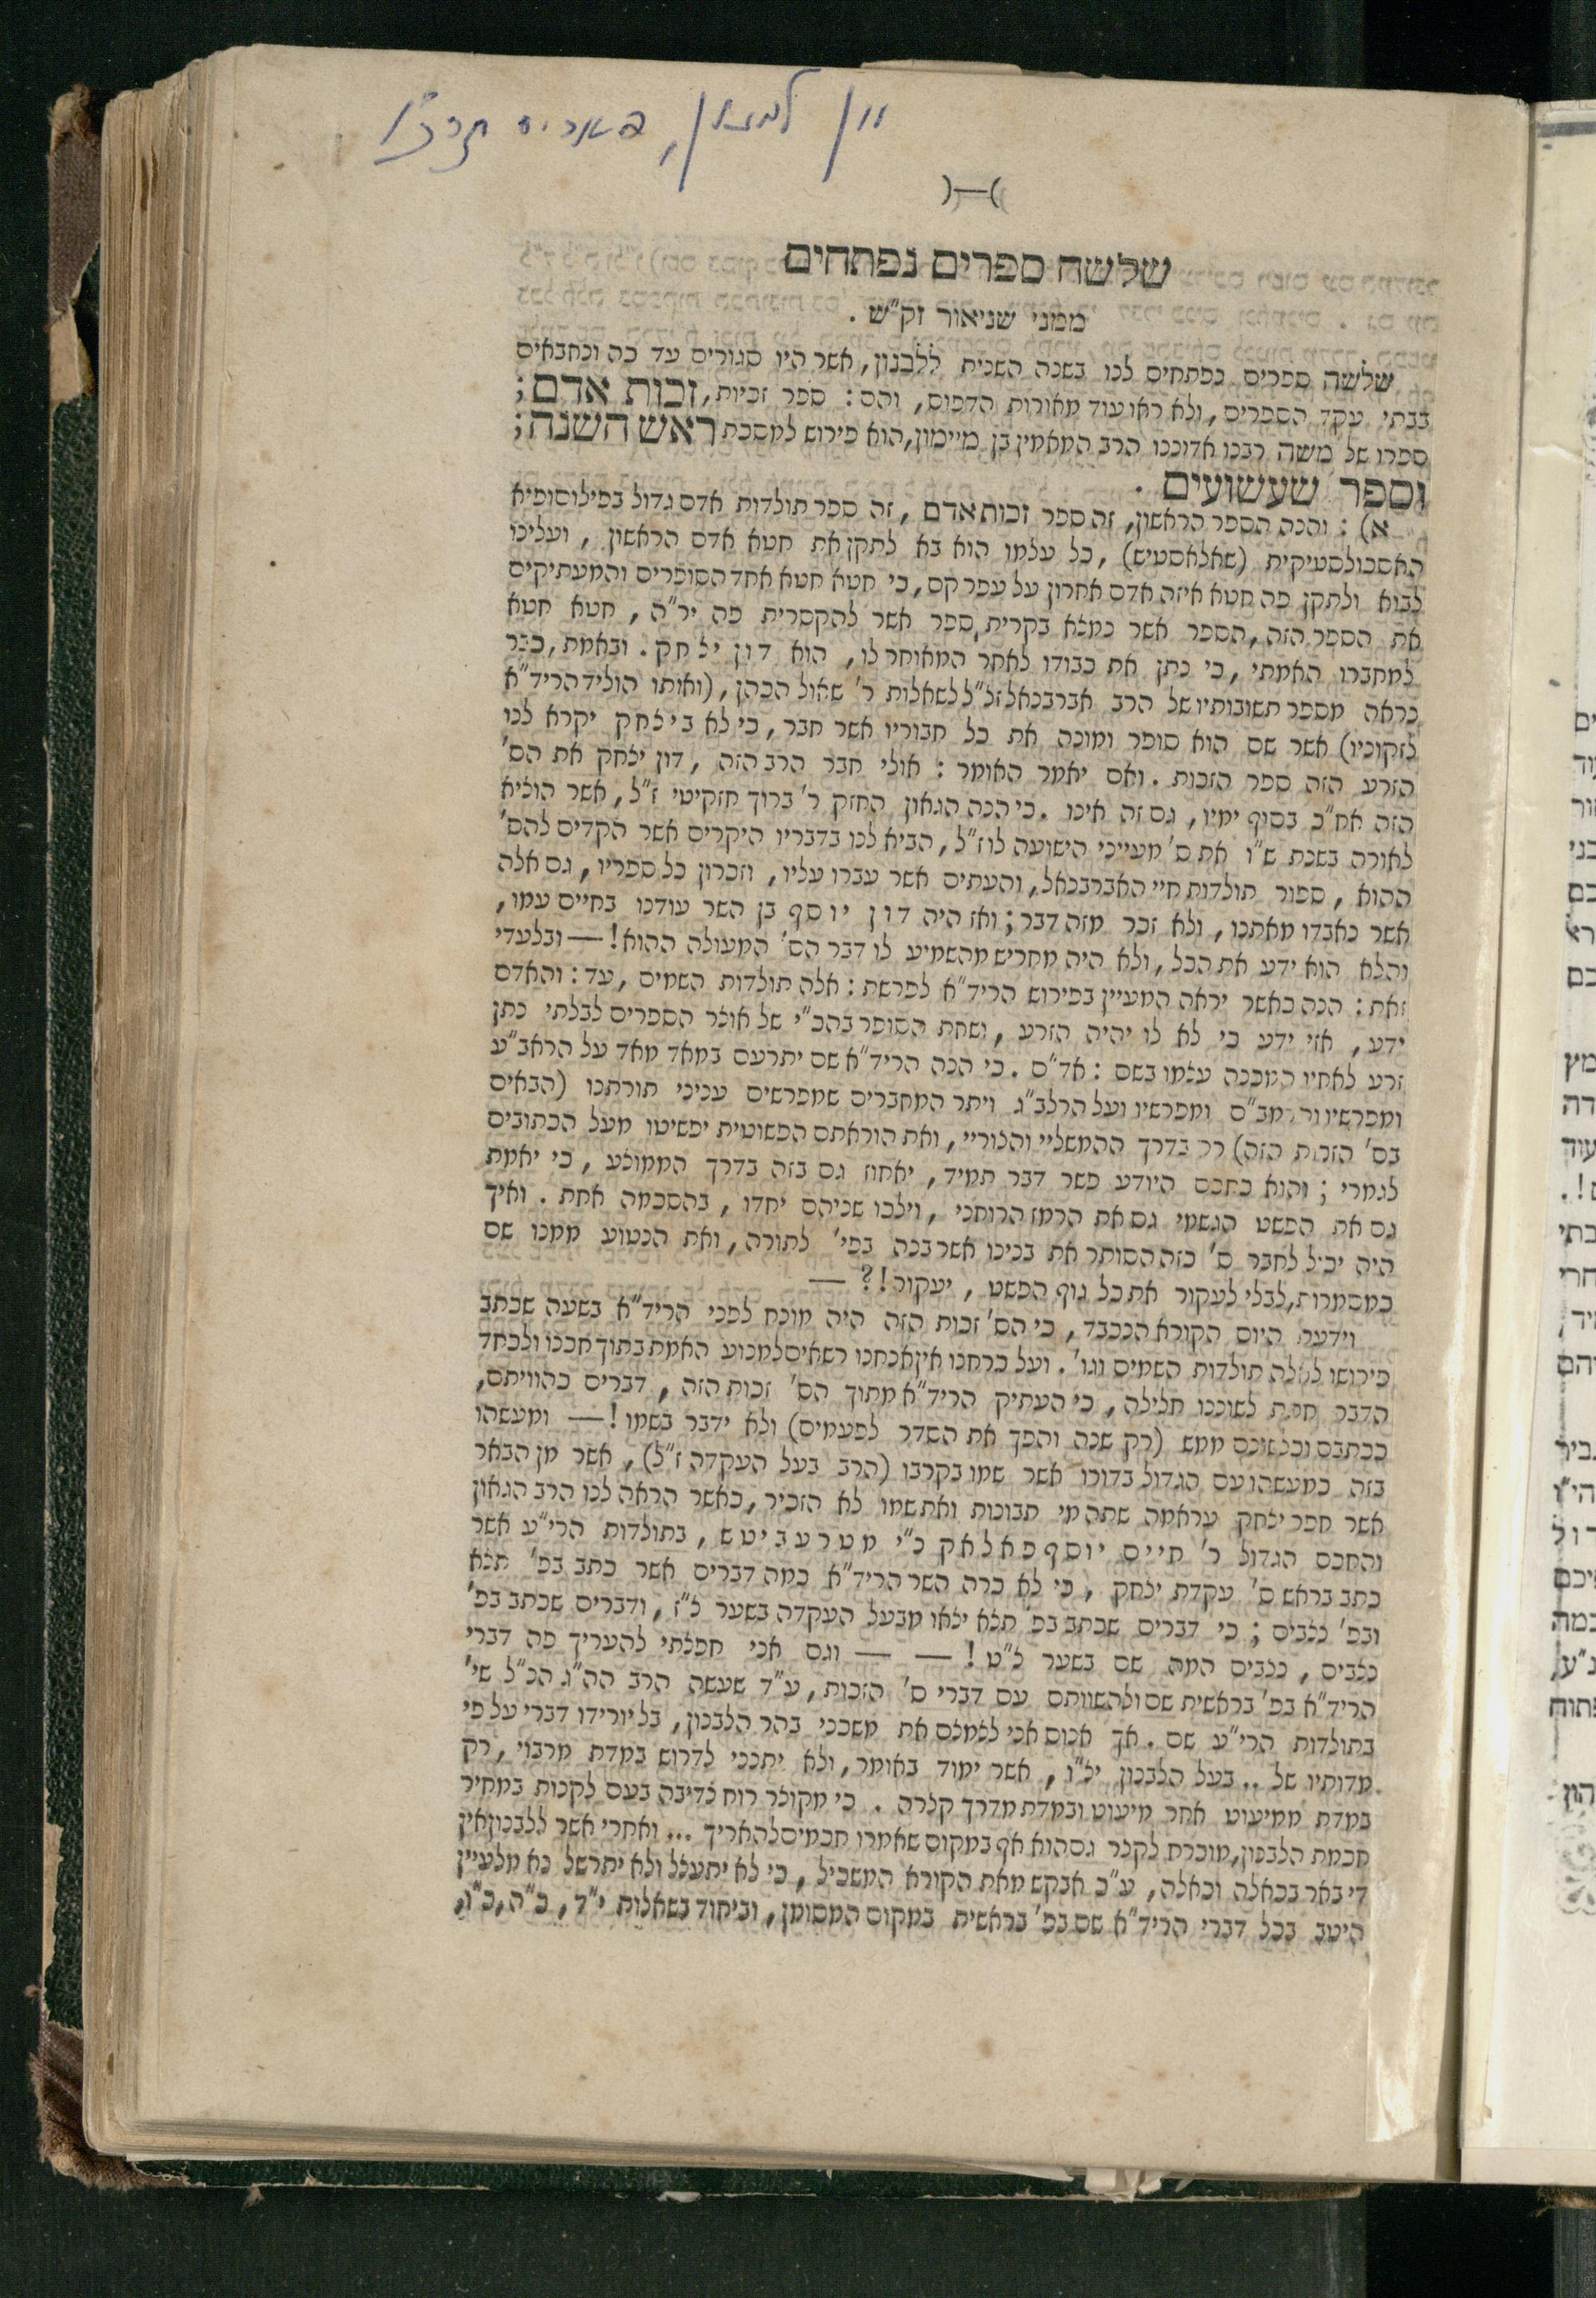 יין לבנון, פאריז תרכ"ו
שלשה ספרים נפתחים
ממני שניאור זק"ש .
שלשה ספרים נפתחים לנו בשנה השנית ללבנון, אשר היו סגורים עד כה ונחבאים
בבתי עקד הספרים, ולא ראו עוד מאורות הדפוס, והם: ספר זכיות, זכות אדם;
ספרו של משה רבנו אדוננו הרב המאמין בן מיימון, הוא פירוש למסכת ראש השנה;
וספר שעשועים .
א) : והנה הספר הראשון, זה ספר זכות אדם, זה ספר תולדות אדם גדול בפילוסופיא
האסכולסטיקית (שאלאסטיש), כל עצמו הוא בא לתקן את חטא אדם הראשון, ועלינו
לבוא ולתקן פה חטא איזה אדם אחרון על עפר קם, כי חטא חטא אחד הסופרים והמעתיקים
את הספר הזה, הספר אשר נמצא בקרית ספר אשר להקסרית פה יר"ה, חטא חטא
למחברו האמתי, כי נתן את כבודו לאחר המאוחר לו, הוא דון יצחק. ובאמת, כבר
נראה מספר תשובותיו של הרב אברבנאל זצ"ל לשאלות ר' שאול הכהן, (ואותו הוליד הריד"א
לזקוניו) אשר שם הוא סופר ומונה את כל חבוריו אשר חבר, כי לא ביצחק יקרא לנו
הזרע הזה ספר הזכות. ואם יאמר האומר: אולי חבר הרב הזה, דון יצחק את הס'
הזה אח"כ בסוף ימיו, גם זה איננו. כי הנה הגאון החזק ר' ברוך חזקיטי ז"ל, אשר הוציא
לאורה בשנת ש"ו את ס' מעייני הישועה לוז"ל, הביא לנו בדבריו היקרים אשר הקדים להס'
ההוא, ספור תולדות חיי האברבנאל, והעתים אשר עברו עליו, וזכרון כל ספריו, גם אלה
אשר נאבדו מאתנו, ולא זכר מזה דבר; ואז היה דון יוסף בן השר עודנו בחיים עמו,
והלא הוא ידע את הכל, ולא היה מחריש מהשמיע לו דבר הס' המעולה ההוא! — ובלעדי
זאת: הנה כאשר יראה המעיין בפירוש הריד"א לפרשת: אלה תולדות השמים, עד: והאדם
ידע, אזי ידע כי לא לו יהיה הזרע, ושחת הסופר בהכ"י של אוצר הספרים לבלתי נתן
זרע לאחיו המכנה עצמו בשם: אד"ם. כי הנה הריד"א שם יתרעם במאד מאד על הראב"ע
ומפרשיו והרמב"ם ומפרשיו ועל הרלב"ג ויתר המחברים שמפרשים עניני תורתנו (הבאים
בס' הזכות הזה) רק בדרך ההמשליי והצוריי, ואת הוראתם הפשוטית יפשיטו מעל הכתובים
לגמרי; והוא כחכם היודע פשר דבר תמיד, יאחוז גם בזה בדרך הממוצע, כי יאמת
גם את הפשט הגשמי גם את הרמז הרוחני, וילכו שניהם יחדו, בהסכמה אחת. ואיך
היה יכול לחבר ס' כזה הסותר את בנינו אשר בנה בפי' לתורה, ואת הנטוע ממנו שם
כמסמרות, לבלי לעקור את כל גוף הפשט, יעקור!? —
וידעת היום הקורא הנכבד, כי הס' זכות הזה היה מונח לפני הריד"א בשעה שכתב
פירושו לאלה תולדות השמים וגו'. ועל כרחנו אין אנחנו רשאים למנוע האמת בתוך חכנו ולכחד
הדבר תחת לשוננו חלילה, כי העתיק הריד"א מתוך הס' זכות הזה, דברים כהוויתם,
ככתבם וכלשונם ממש (רק שנה והפך את הסדר לפעמים) ולא ידבר בשמו! — ומעשהו
בזה כמעשהו עם הגדול בדורו אשר שמו בקרבו (הרב בעל העקדה ז"ל), אשר מן הבאר
אשר חפר יצחק עראמה שתה מי תבונות ואת שמו לא הזכיר, כאשר הראה לנו הרב הגאון
והחכם הגדול ר' חיים יוסף פאלאק נ"י מטרעביטש, בתולדות הרי"ע אשר
כתב בראש ס' עקדת יצחק, כי לא כרה השר הריד"א כמה דברים אשר כתב בפ' תצא
ובפ' נצבים; כי דברים שכתב בפ' תצא יצאו מבעל העקדה בשער צ"ז, ודברים שכתב בפ'
נצבים, נצבים המה שם בשער צ"ט! — — וגם אני חפצתי להעריך פה דברי
הריד"א בפ' בראשית שם ולהשוותם עם דברי ס' הזכות, ע"ד שעשה הרב הה"ג הנ"ל שי'
בתולדות הרי"ע שם. אך אנוס אני לצמצם את משכני בהר הלבנון, בל יורידו דברי על פי
מדותיו של .. בעל הלבנון יצ"ו, אשר ימוד באומר, ולא יתנני לדרוש במדת מרבוי, רק
במדת ממיעוט אחר מיעוט ובמדת מדרך קצרה. כי מקוצר רוח נדיבה בעם לקנות במחיר
חכמת הלבנון, מוכרח לקצר גם הוא אף במקום שאמרו חכמים להאריך ... ואחרי אשר ללבנון אין
די באר בכאלה וכאלה, ע"כ אבקש מאת הקורא המשכיל, כי לא יתעצל ולא יתרשל נא מלעיין
היטב בכל דברי הריד"א שם בפ' בראשית במקום המסומן, וביחוד בשאלות י"ד, כ"ה, כ"ו,